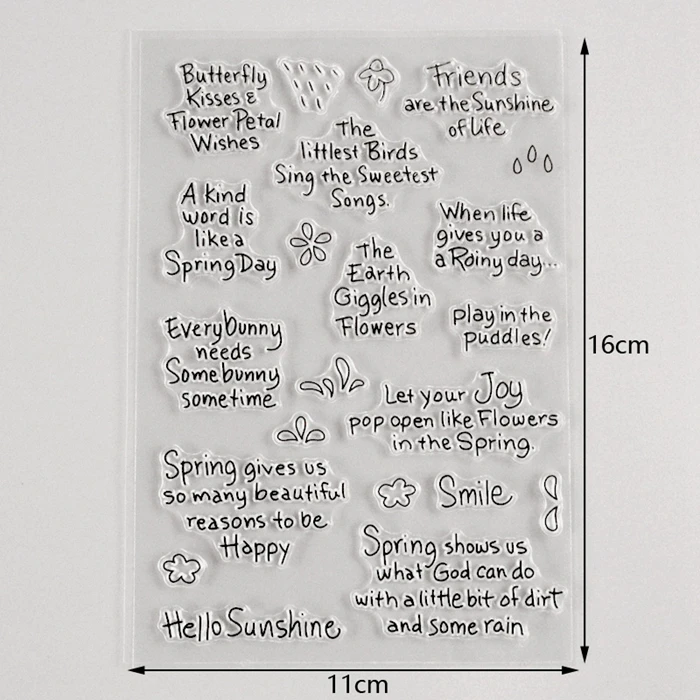 Butterfly
Kisses &
Flower Petal
Wishes
Friends
are the Sunshine
of Life
The
littlest Birds
Sing the Sweetest
Songs.
A kind
word is
like a
Spring Day
When life
gives you a
a Rainy day...
The
Earth
Giggles in
Flowers
play in the
puddles!
Everybunny
needs
Somebunny
sometime
Let your Joy
pop open like Flowers
in the Spring.
Spring gives us
so many beautiful
reasons to be
Happy
Smile
Spring shows us
what God can do
with a little bit of dirt
and some rain
Hello Sunshine
16cm
11cm